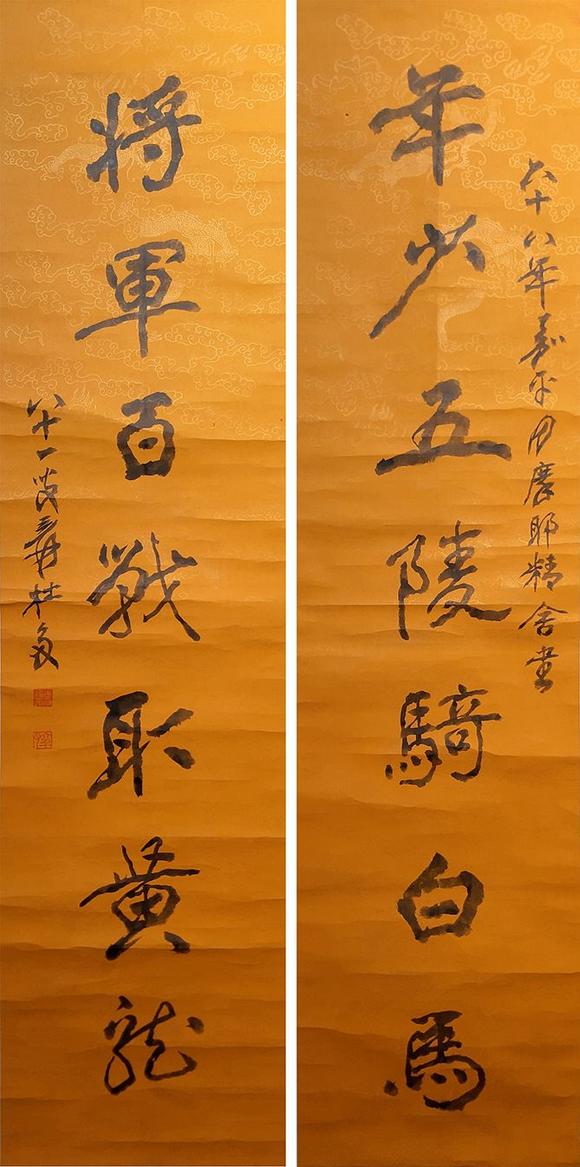 六十八年嘉平月摩耶精舍書
年少五陵騎白馬
將軍百戰取黃龍
八十一叟爰杜多